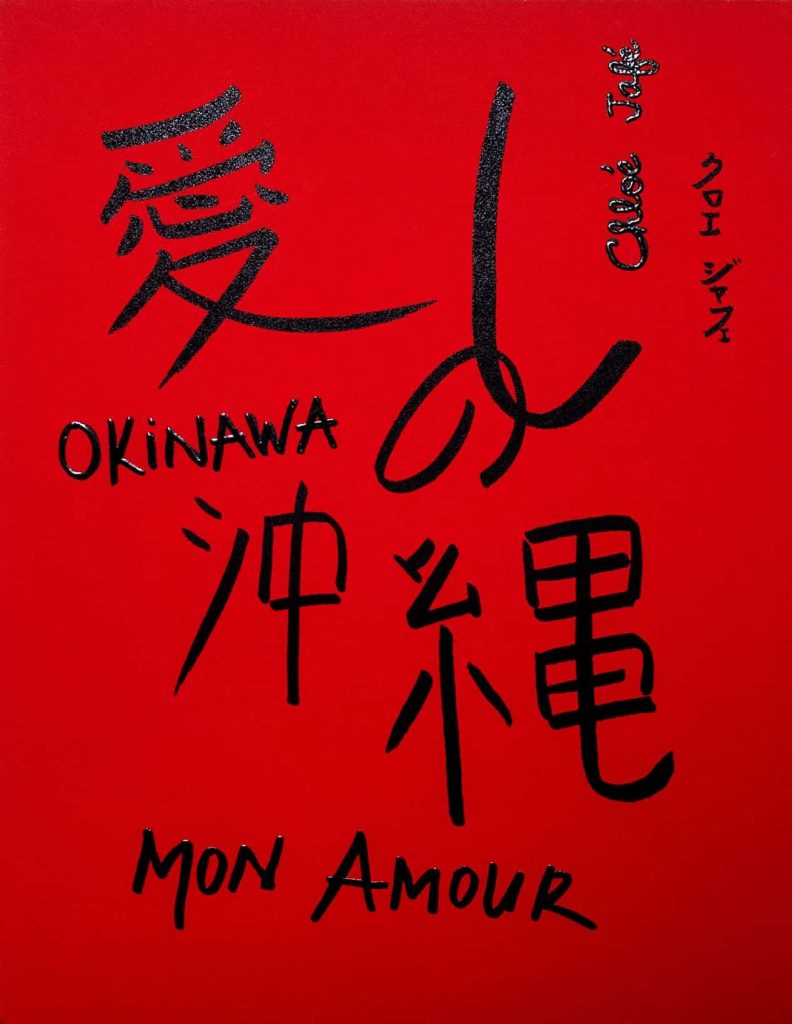 Chloé Jafé
クロエ ジャフェ
愛しの
OKiNAWA
沖縄
MON AMOUR